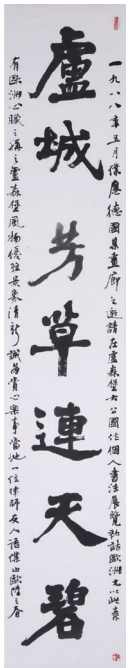 一九八八年五月僕應德國某畫廊之邀請在盧森堡大公國作個人書法展覽初訪歐洲尤以此素
盧城芳草連天碧
有歐洲心臟之稱之盧森堡風物優雅景素清新誠為賞心樂事當地一位律師友人語僕曰歐陸之春